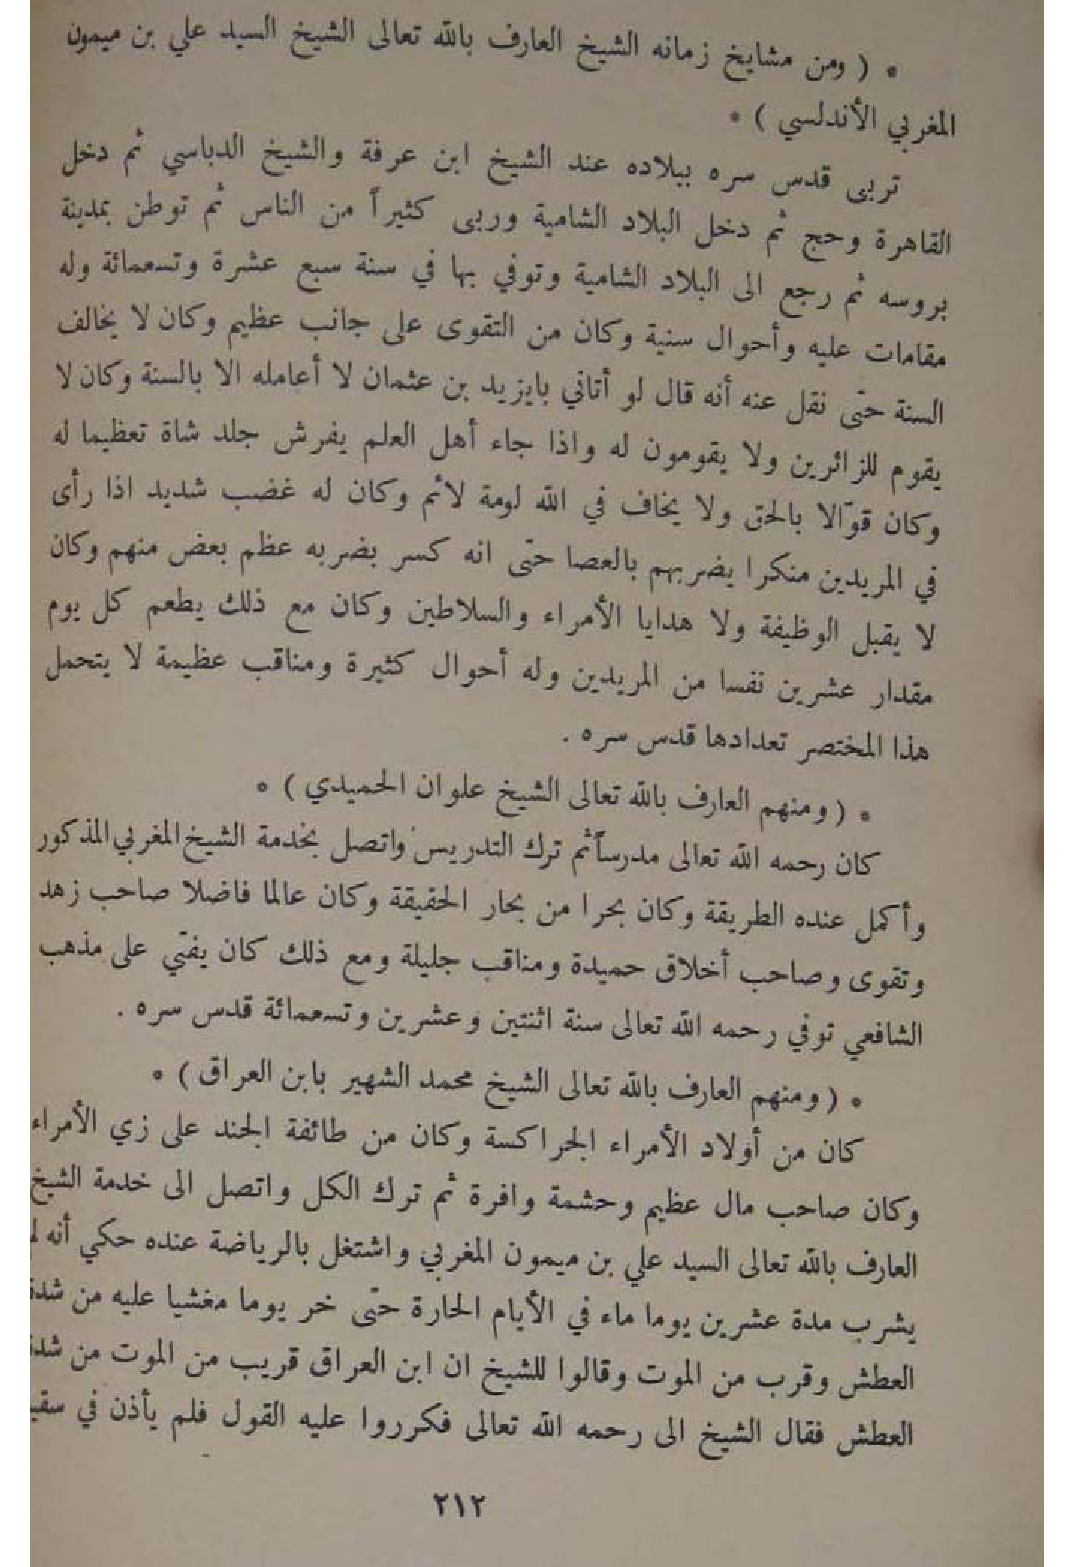 * ( ومن مشايخ زمانه الشيخ العارف بالله تعالى الشيخ السيد علي بن ميمون
المغربي الأندلسي ) *
تربى قدس سره ببلاده عند الشيخ ابن عرفة والشيخ الدباسي ثم دخل
القاهرة وحج ثم دخل البلاد الشامية وربى كثيراً من الناس ثم توطن بمدينة
بروسه ثم رجع الى البلاد الشامية وتوفي بها في سنة سبع عشرة وتسعمائة وله
مقامات عليه وأحوال سنية وكان من التقوى على جانب عظيم وكان لا يخالف
السنة حتى نقل عنه أنه قال لو أتاني بايزيد بن عثمان لا أعامله الا بالسنة وكان لا
يقوم للزائرين ولا يقومون له واذا جاء أهل العلم يفرش جلد شاة تعظيما له
وكان قوّالا بالحق ولا يخاف في الله لومة لائم وكان له غضب شديد اذا رأى
في المريدين منكرا يضربهم بالعصا حتى انه كسر بضربه عظم بعض منهم وكان
لا يقبل الوظيفة ولا هدايا الأمراء والسلاطين وكان مع ذلك يطعم كل يوم
مقدار عشرين نفسا من المريدين وله أحوال كثيرة ومناقب عظيمة لا يتحمل
هذا المختصر تعدادها قدس سره .
* ( ومنهم العارف بالله تعالى الشيخ علوان الحميدي ) *
كان رحمه الله تعالى مدرساً ثم ترك التدريس واتصل بخدمة الشيخ المغربي المذكور
وأكمل عنده الطريقة وكان بحرا من بحار الحقيقة وكان عالما فاضلا صاحب زهد
وتقوى وصاحب أخلاق حميدة ومناقب جليلة ومع ذلك كان يفتي على مذهب
الشافعي توفي رحمه الله تعالى سنة اثنتين وعشرين وتسعمائة قدس سره .
* ( ومنهم العارف بالله تعالى الشيخ محمد الشهير بابن العراق ) *
كان من أولاد الأمراء الجراكسة وكان من طائفة الجند على زي الأمراء
وكان صاحب مال عظيم وحشمة وافرة ثم ترك الكل واتصل الى خدمة الشيخ
العارف بالله تعالى السيد علي بن ميمون المغربي واشتغل بالرياضة عنده حكي أنه
يشرب مدة عشرين يوما ماء في الأيام الحارة حتى خر يوما مغشيا عليه من شدة
العطش وقرب من الموت وقالوا للشيخ ان ابن العراق قريب من الموت من شدة
العطش فقال الشيخ الى رحمه الله تعالى فكرروا عليه القول فلم يأذن في
٢١٢